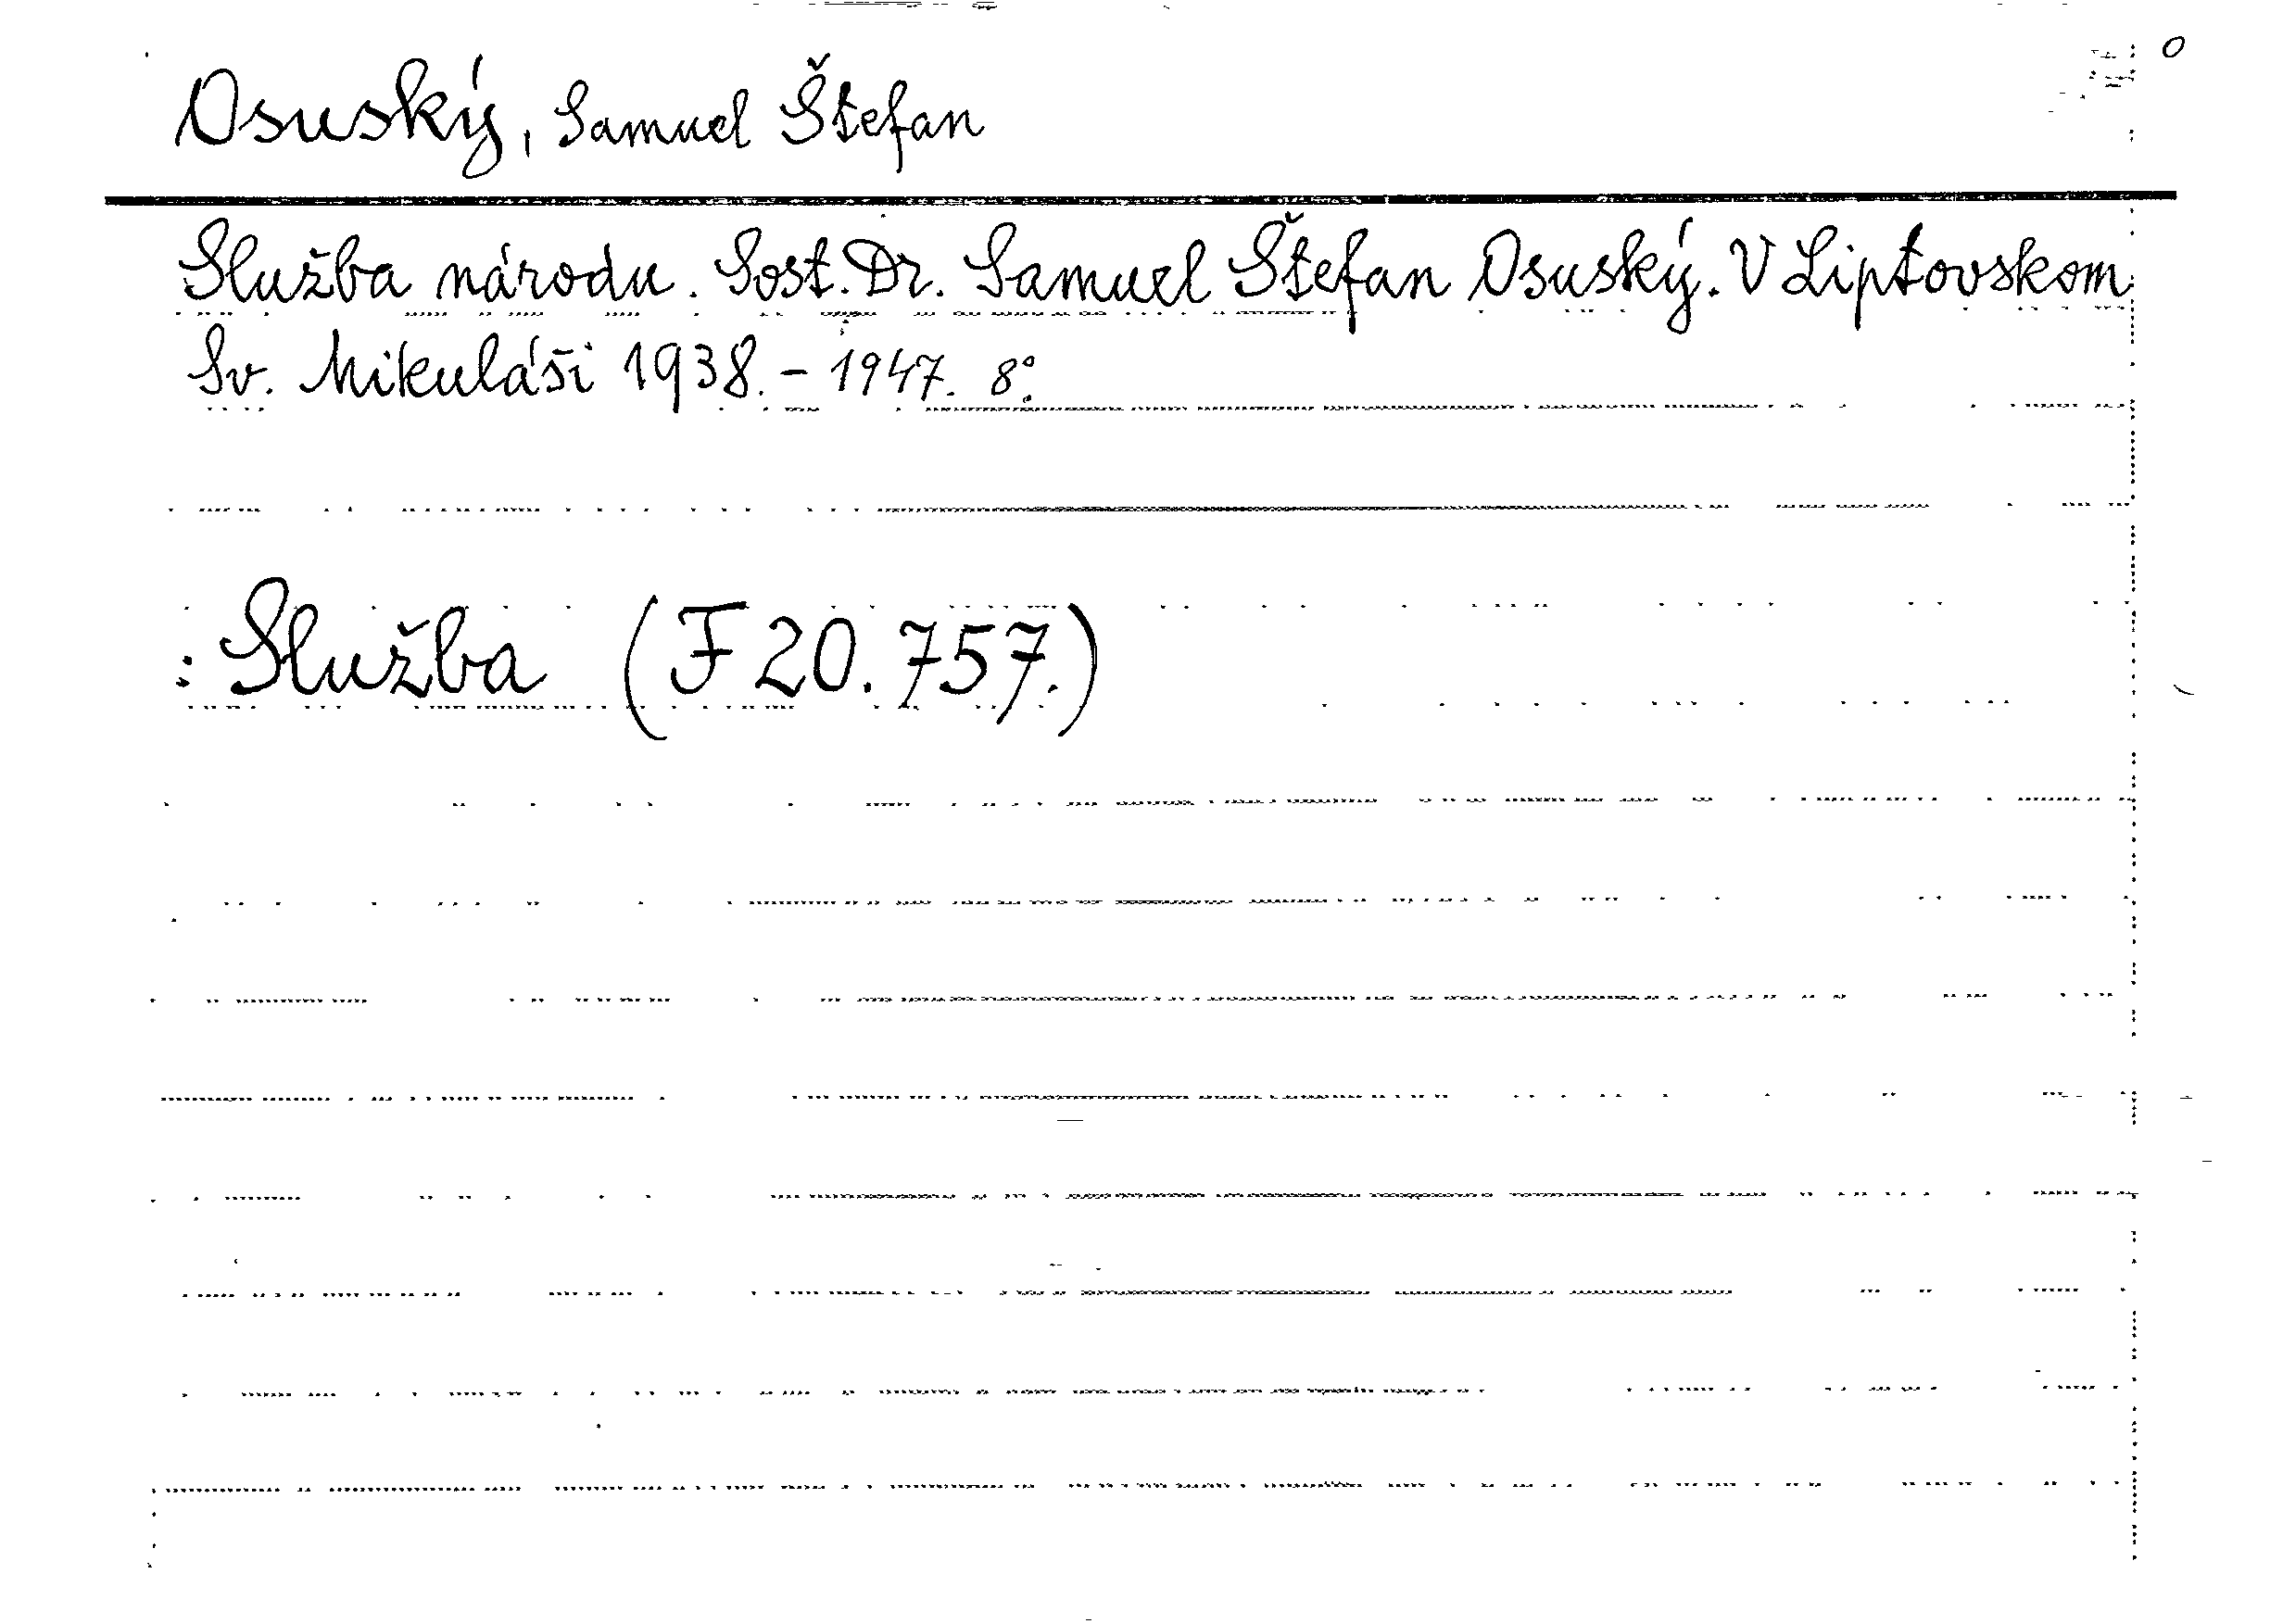 Osuský, Samuel Štefan
Služba národu. Sost. Dr. Samuel Štefan Osuský. V Liptovskom
Sv. Mikuláši 1938. - 1947. 8°.
: Služba (F 20.757.)